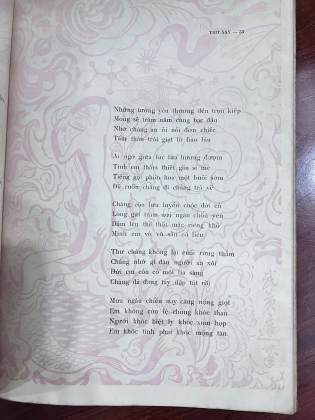 THƠ SAY — 53
Những tưởng yêu thương đến trọn kiếp
Mong sẽ trăm năm cùng bạc đầu
Như chàng an ủi nỗi đơn chiếc
Tấm thân trôi giạt từ bao lâu
Ai ngờ giữa lúc lửa hương đượm
Tình em thắm thiết gần si mê
Tiếng gọi phồn hoa một buổi sớm
Đã cuốn chàng đi chẳng trở về
Chàng còn lưu luyến cuộc đời cũ
Lòng gái trăm nơi ngàn chốn yêu
Dám lên thề thối mặc
Mình em vò võ sầu cô liêu
Thư chàng không lại cuối rừng thẳm
Chàng nhớ gì đâu người xa xôi
Đời em còn có một tia sáng
Chàng đã đang tay dập tắt rồi
Mưa ngàu chiều nay càng nóng giọt
Em không còn lệ chẳng khóc than
Người khóc biệt ly khóc sum họp
Em khóc tình phai khóc mộng tàn